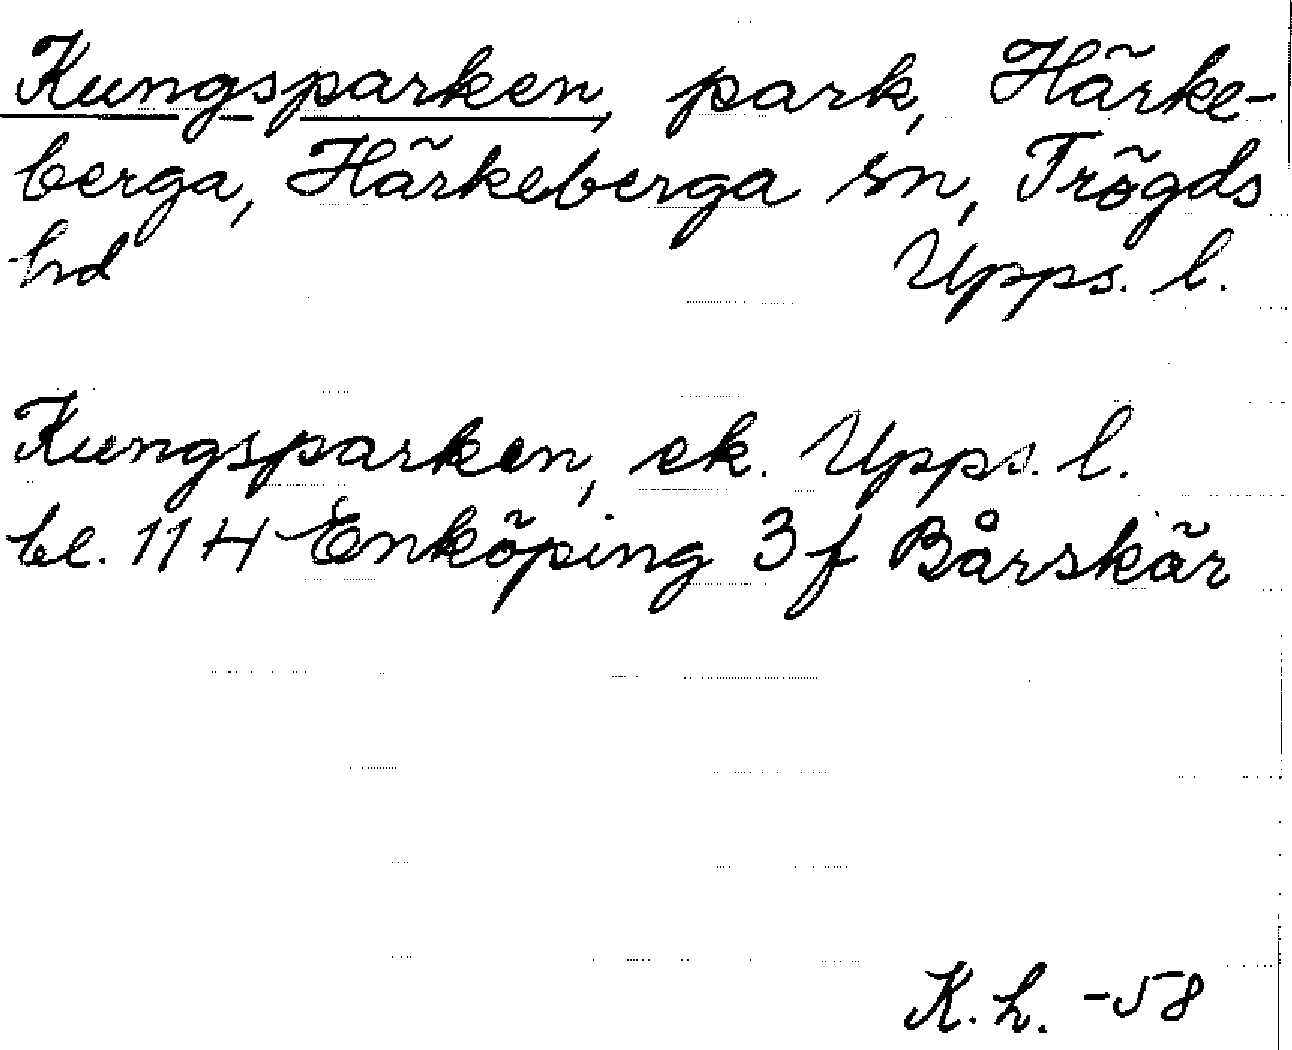 Kungsparken, park, Härke-
berga, Härkeberga sn, Trögds
hd Upps. l.
Kungsparken, ek. Upps. l.
bl. 11 H Enköping 3 f Bårskär
K. h. -58